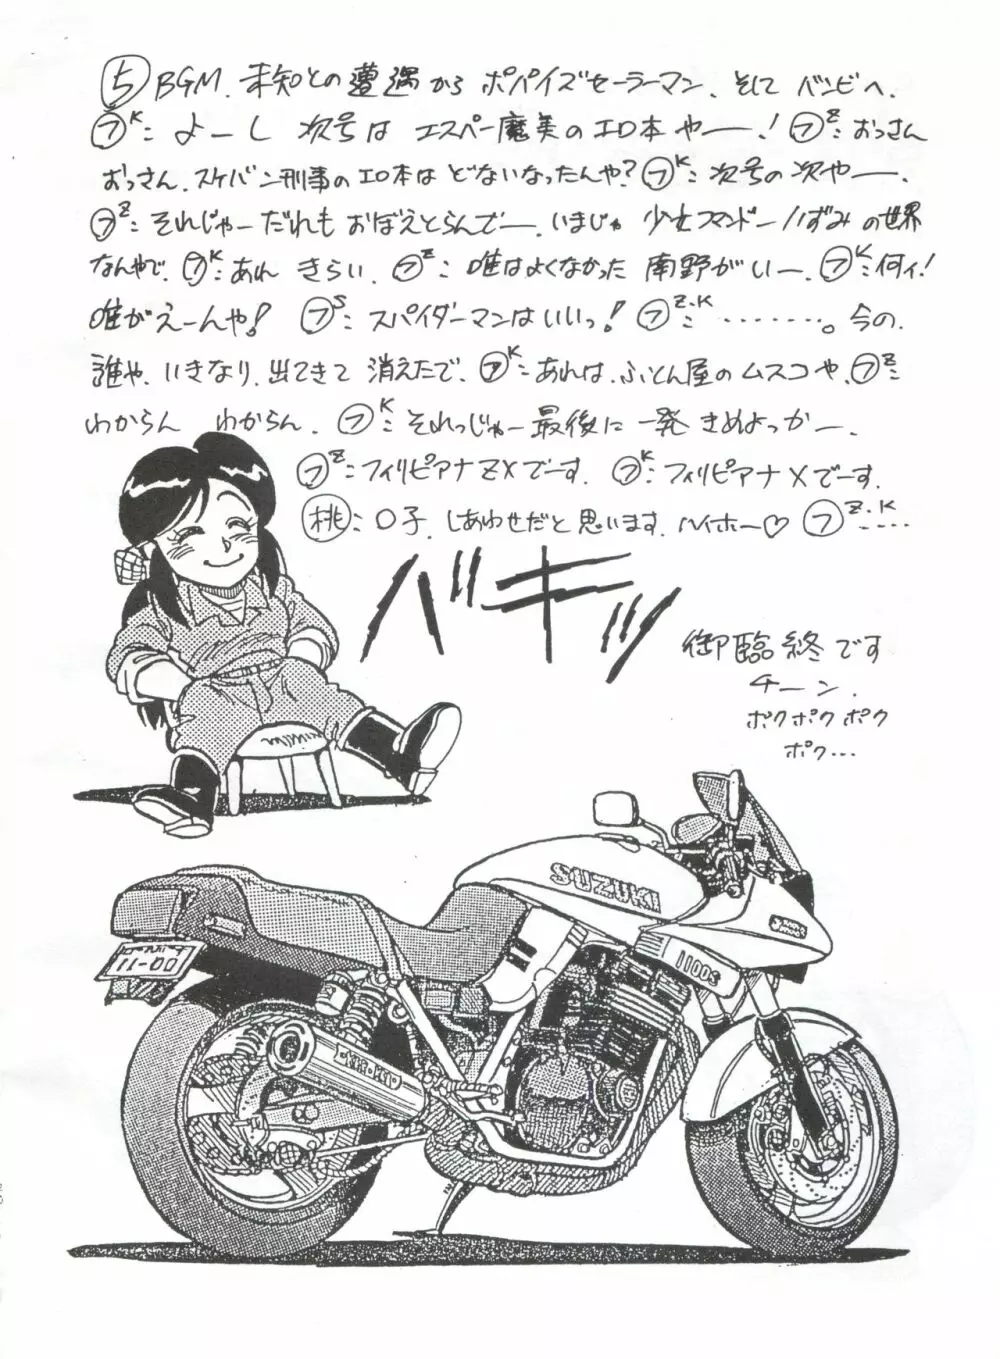 ⑤ BGM. 未知との遭遇から ポパイズセーラーマン、そして バンビへ.
㋫K: よーし 次号は エスパー魔美のエロ本やー! ㋫Z: おっさん
おっさん. スケバン刑事のエロ本は どないなったんや? ㋫K: 次号の次やー.
㋫Z: それじゃーだれも おぼえとらんでー. いまじゃ 少女コマンドーいずみの世界
なんやで. ㋫K: あれ きらい. ㋫Z: 唯はよくなかった 南野がいー. ㋫K: 何ィ!
唯がえーんや! ㋫S: スパイダーマンはいいっ! ㋫Z・K: ・・・・・・・・。今の.
誰や. いきなり. 出てきて 消えたで. ㋫K: あれは、ふとん屋のムスコや. ㋫Z:
わからん わからん. ㋫K: それっじゃー最後に 一発 きめよっかー.
㋫Z: フィリピアナZXでーす. ㋫K: フィリピアナXでーす.
桃: ○子. しあわせだと思います. ハイホー♡ ㋫Z・K ・・・・
バキッ
御臨終です
チーン.
ポクポクポク
ポク・・・
SUZUKI
1100S
00-11